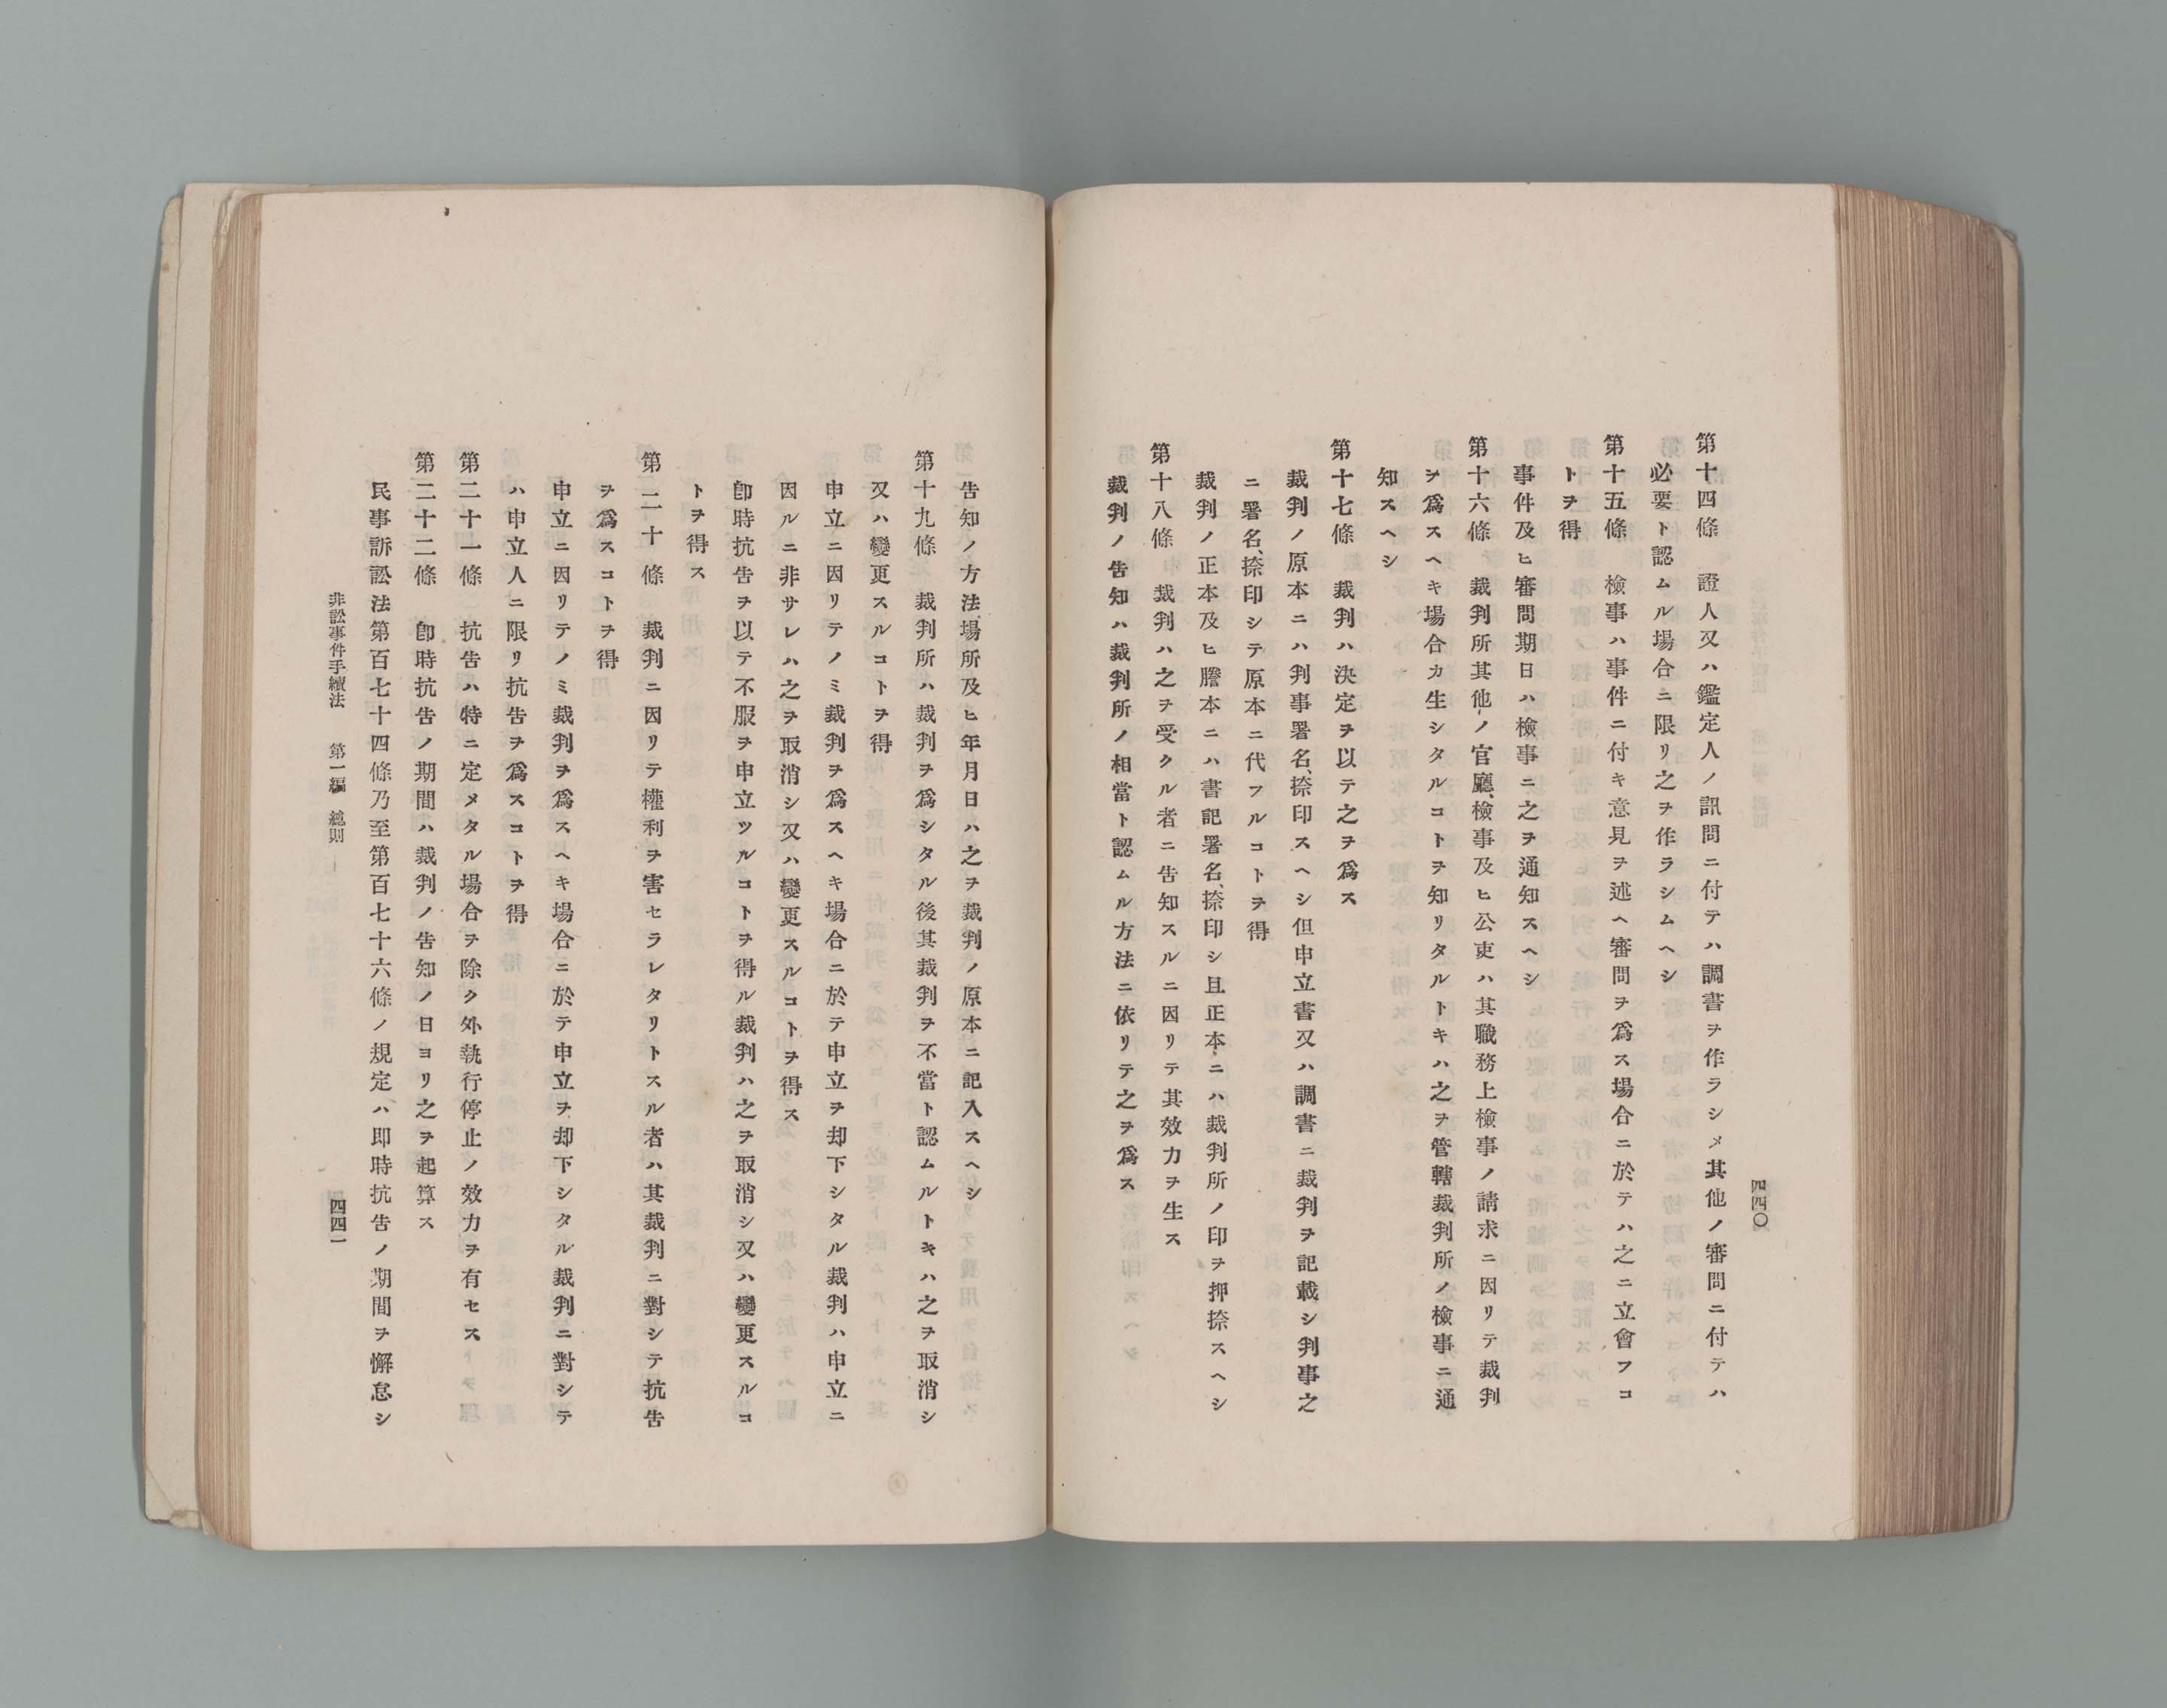 四四〇
第十四條　證人又ハ鑑定人ノ訊問ニ付テハ調書ヲ作ラシメ其他ノ審問ニ付テハ
必要ト認ムル場合ニ限リ之ヲ作ラシムヘシ
第十五條　檢事ハ事件ニ付キ意見ヲ述ヘ審問ヲ爲ス場合ニ於テハ之ニ立會フコ
トヲ得
事件及ヒ審問期日ハ檢事ニ之ヲ通知スヘシ
第十六條　裁判所其他ノ官廳、檢事及ヒ公吏ハ其職務上檢事ノ請求ニ因リテ裁判
ヲ爲スヘキ場合カ生シタルコトヲ知リタルトキハ之ヲ管轄裁判所ノ檢事ニ通
知スヘシ
第十七條　裁判ハ決定ヲ以テ之ヲ爲ス
裁判ノ原本ニハ判事署名、捺印スヘシ但申立書又ハ調書ニ裁判ヲ記載シ判事之
ニ署名、捺印シテ原本ニ代フルコトヲ得
裁判ノ正本及ヒ謄本ニハ書記署名、捺印シ且正本ニハ裁判所ノ印ヲ押捺スヘシ
第十八條　裁判ハ之ヲ受クル者ニ告知スルニ因リテ其效力ヲ生ス
裁判ノ告知ハ裁判所ノ相當ト認ムル方法ニ依リテ之ヲ爲ス
告知ノ方法、場所及ヒ年月日ハ之ヲ裁判ノ原本ニ記入スヘシ
第十九條　裁判所ハ裁判ヲ爲シタル後其裁判ヲ不當ト認ムルトキハ之ヲ取消シ
又ハ變更スルコトヲ得
申立ニ因リテノミ裁判ヲ爲スヘキ場合ニ於テ申立ヲ却下シタル裁判ハ申立ニ
因ルニ非サレハ之ヲ取消シ又ハ變更スルコトヲ得ス
卽時抗告ヲ以テ不服ヲ申立ツルコトヲ得ル裁判ハ之ヲ取消シ又ハ變更スルコ
トヲ得ス
第二十條　裁判ニ因リテ權利ヲ害セラレタリトスル者ハ其裁判ニ對シテ抗告
ヲ爲スコトヲ得
申立ニ因リテノミ裁判ヲ爲スヘキ場合ニ於テ申立ヲ却下シタル裁判ニ對シテ
ハ申立人ニ限リ抗告ヲ爲スコトヲ得
第二十一條　抗告ハ特ニ定メタル場合ヲ除ク外執行停止ノ效力ヲ有セス
第二十二條　卽時抗告ノ期間ハ裁判ノ告知ノ日ヨリ之ヲ起算ス
民事訴訟法第百七十四條乃至第百七十六條ノ規定ハ卽時抗告ノ期間ヲ懈怠シ
非訟事件手續法　第一編　總則
四四一